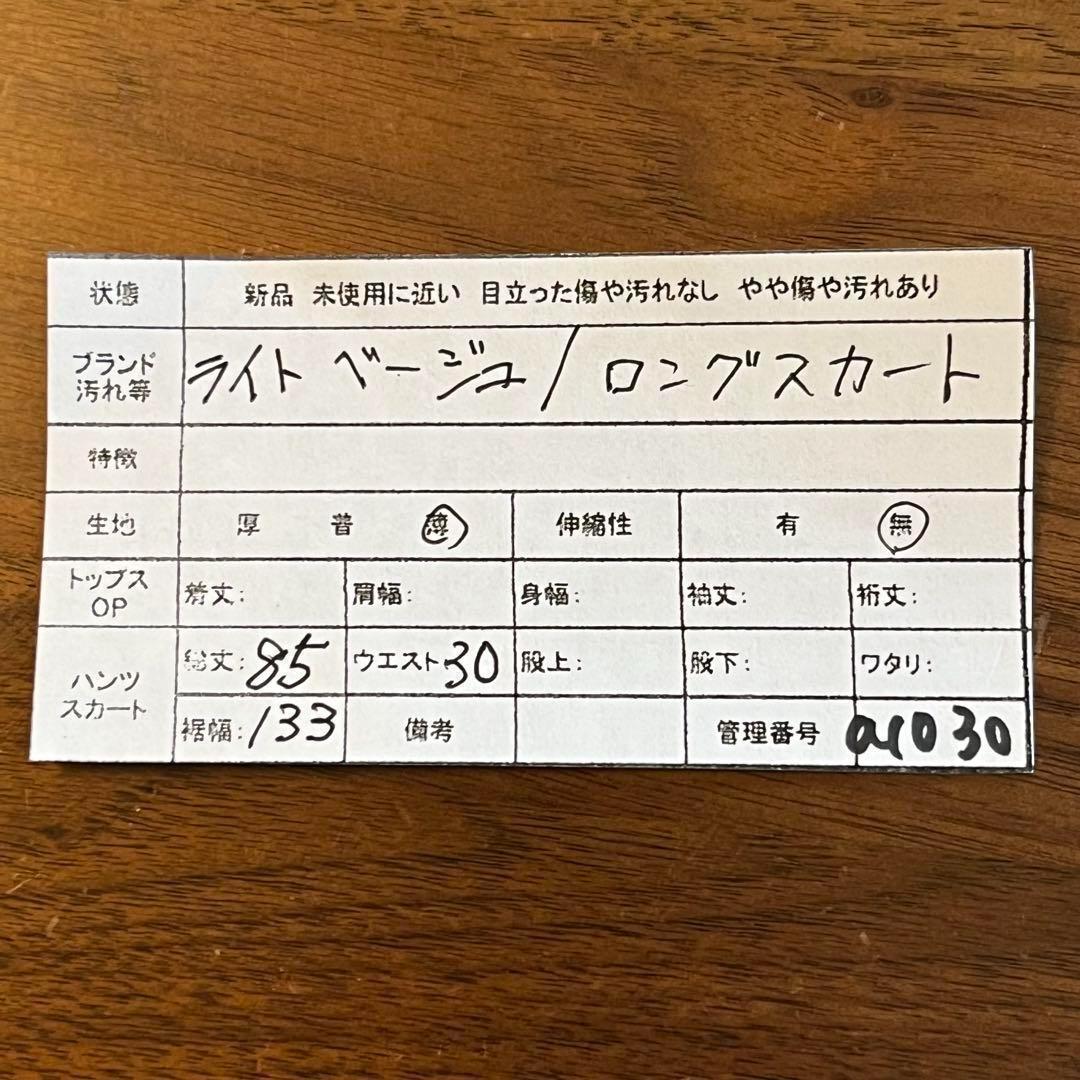 状態 新品 未使用に近い 目立った傷や汚れなし やや傷や汚れあり
ブランド
汚れ等
ライトベージュ/ロングスカート
特徴
生地 厚 普 薄 伸縮性 有 無
トップス
OP
着丈: 肩幅: 身幅: 袖丈: 裄丈:
パンツ
スカート
総丈: 85 ウエスト 30 股上: 股下: ワタリ:
裾幅: 133 備考 管理番号 a1030